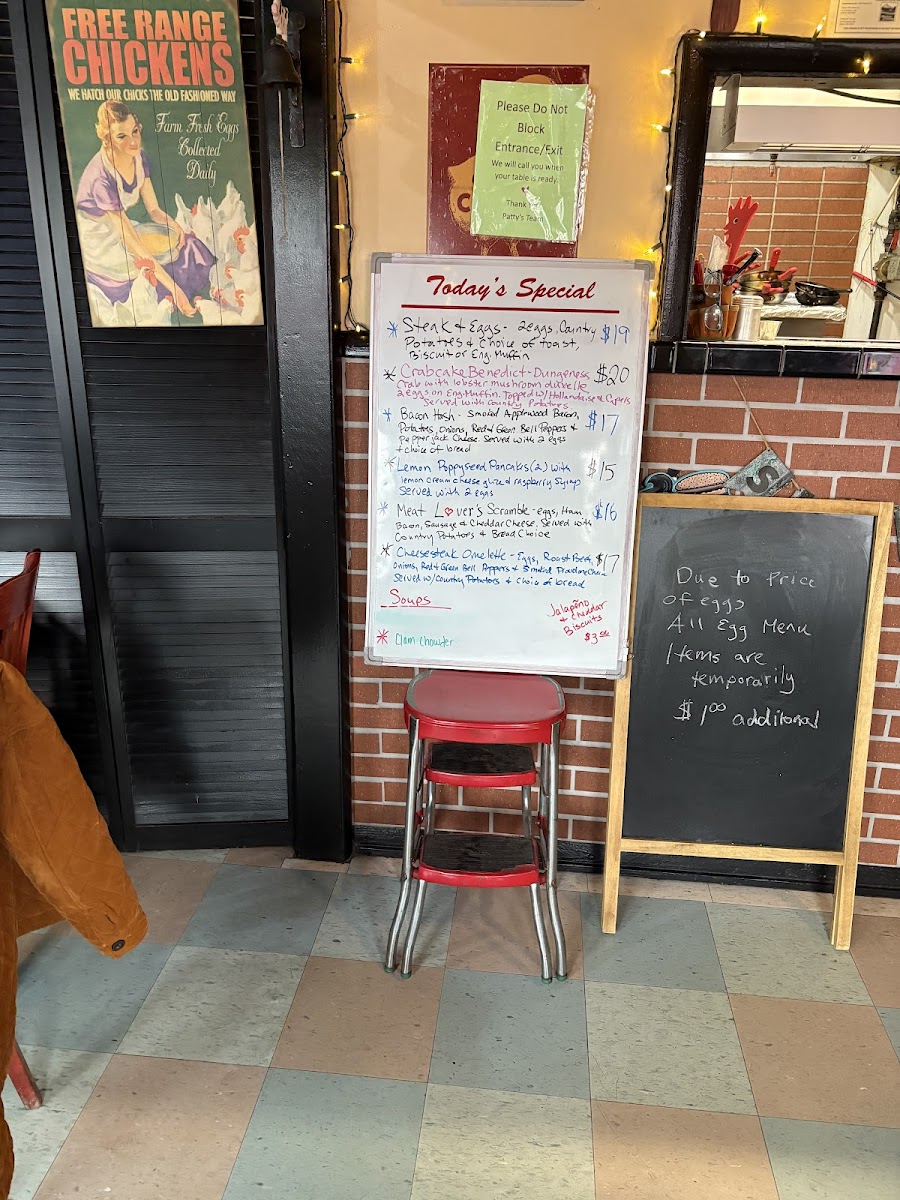 FREE RANGE
CHICKENS
WE HATCH OUR CHICKS THE OLD FASHIONED WAY
Farm Fresh Eggs
Collected
Daily
Please Do Not
Block
Entrance/Exit
We will call you when
your table is ready.
Thank
Patty's Team
Today's Special
* Steak & Eggs - 2 eggs, Country $19
Potatoes & Choice of toast,
Biscuit or Eng. Muffin
* Crabcake Benedict - Dungeness $20
Crab with lobster mushroom
2 eggs on Eng. Muffin. Topped w/ Hollandaise & Capers
Served with Country Potatoes
* Bacon Hash - Smoked Applewood Bacon, $17
Potatoes, Onions, Red & Green Bell Peppers &
pepper jack Cheese. Served with 2 eggs
& choice of bread
* Lemon Poppyseed Pancakes (2) with $15
lemon cream cheese glaze & raspberry Syrup
Served with 2 eggs
* Meat Lover's Scramble - eggs, Ham $16
Bacon, Sausage & Cheddar Cheese. Served with
Country Potatoes & Bread Choice
* Cheesesteak Omelette - Eggs, Roast Beef, $17
Onions, Red & Green Bell Peppers & Smoked Provolone Cheese
Served w/ Country Potatoes & choice of bread
Soups
* Clam Chowder
Jalapeño
& Cheddar
Biscuits
$3.50
Due to Price
of eggs
All Egg Menu
Items are
temporarily
$1.00 additional